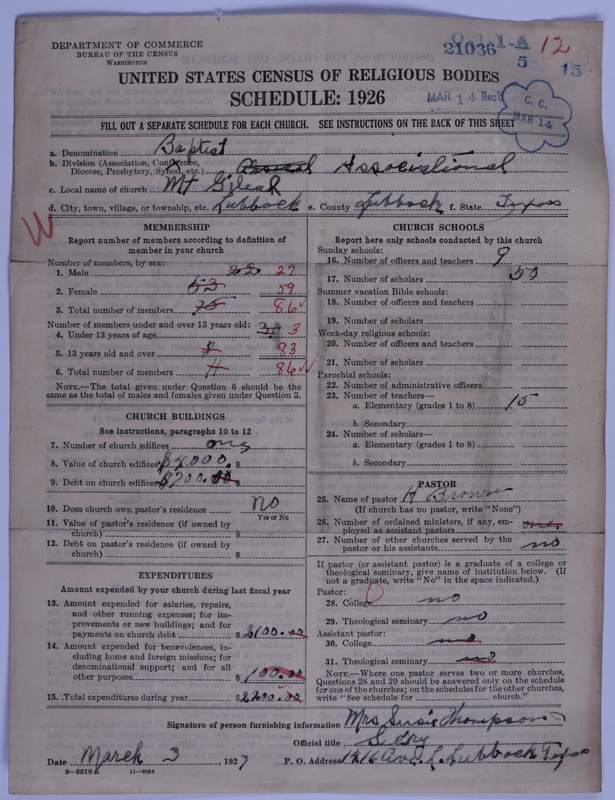 DEPARTMENT OF COMMERCE
BUREAU OF THE CENSUS
WASHINGTON
21036 1-A 12
5 15
UNITED STATES CENSUS OF RELIGIOUS BODIES
SCHEDULE: 1926
MAR 14 Rec'd
C. C.
MAR 14
FILL OUT A SEPARATE SCHEDULE FOR EACH CHURCH. SEE INSTRUCTIONS ON THE BACK OF THIS SHEET
a. Denomination Baptist
b. Division (Association, Conference,
Diocese, Presbytery, Synod, etc.) Associational
c. Local name of church Mt Gilead
d. City, town, village, or township, etc. Lubbock e. County Lubbock f. State Texas
W
MEMBERSHIP
Report number of members according to definition of
member in your church
Number of members, by sex:
1. Male 22 27
2. Female 53 59
3. Total number of members 75 86
Number of members under and over 13 years old:
4. Under 13 years of age 3 3
5. 13 years old and over 8 83
6. Total number of members 11 86
NOTE.—The total given under Question 6 should be
same as the total of males and females given under Question 3.
CHURCH BUILDINGS
See instructions, paragraphs 10 to 12
7. Number of church edifices one
8. Value of church edifices $4000. $
9. Debt on church edifices $700.00 $
10. Does church own pastor's residence no
Yes or No
11. Value of pastor's residence (if owned by
church) $
12. Debt on pastor's residence (if owned by
church) $
EXPENDITURES
Amount expended by your church during last fiscal year
13. Amount expended for salaries, repairs,
and other running expenses; for im-
provements or new buildings; and for
payments on church debt $2100.00
14. Amount expended for benevolences, in-
cluding home and foreign missions; for
denominational support; and for all
other purposes 100.00
15. Total expenditures during year $2200.00
CHURCH SCHOOLS
Report here only schools conducted by this church
Sunday schools:
16. Number of officers and teachers 9
17. Number of scholars 50
Summer vacation Bible schools:
18. Number of officers and teachers
19. Number of scholars
Week-day religious schools:
20. Number of officers and teachers
21. Number of scholars
Parochial schools:
22. Number of administrative officers
23. Number of teachers—
a. Elementary (grades 1 to 8) 15
b. Secondary
24. Number of scholars—
a. Elementary (grades 1 to 8)
b. Secondary
PASTOR
25. Name of pastor H Brown
(If church has no pastor, write "None")
26. Number of ordained ministers, if any, em-
ployed as assistant pastors one
27. Number of other churches served by the
pastor or his assistants no
If pastor (or assistant pastor) is a graduate of a college or
theological seminary, give name of institution below. (If
not a graduate, write "No" in the space indicated.)
Pastor:
28. College no
29. Theological seminary no
Assistant pastor:
30. College no
31. Theological seminary no
NOTE.—Where one pastor serves two or more churches,
Questions 28 and 29 should be answered only on the schedule
for one of the churches; on the schedules for the other churches,
write "See schedule for church."
Signature of person furnishing information Mrs Susie Thompson
Official title Sectry
Date March 3 1927 P. O. Address 1816 Ave. L. Lubbock Texas
8—5518 a 11—9054